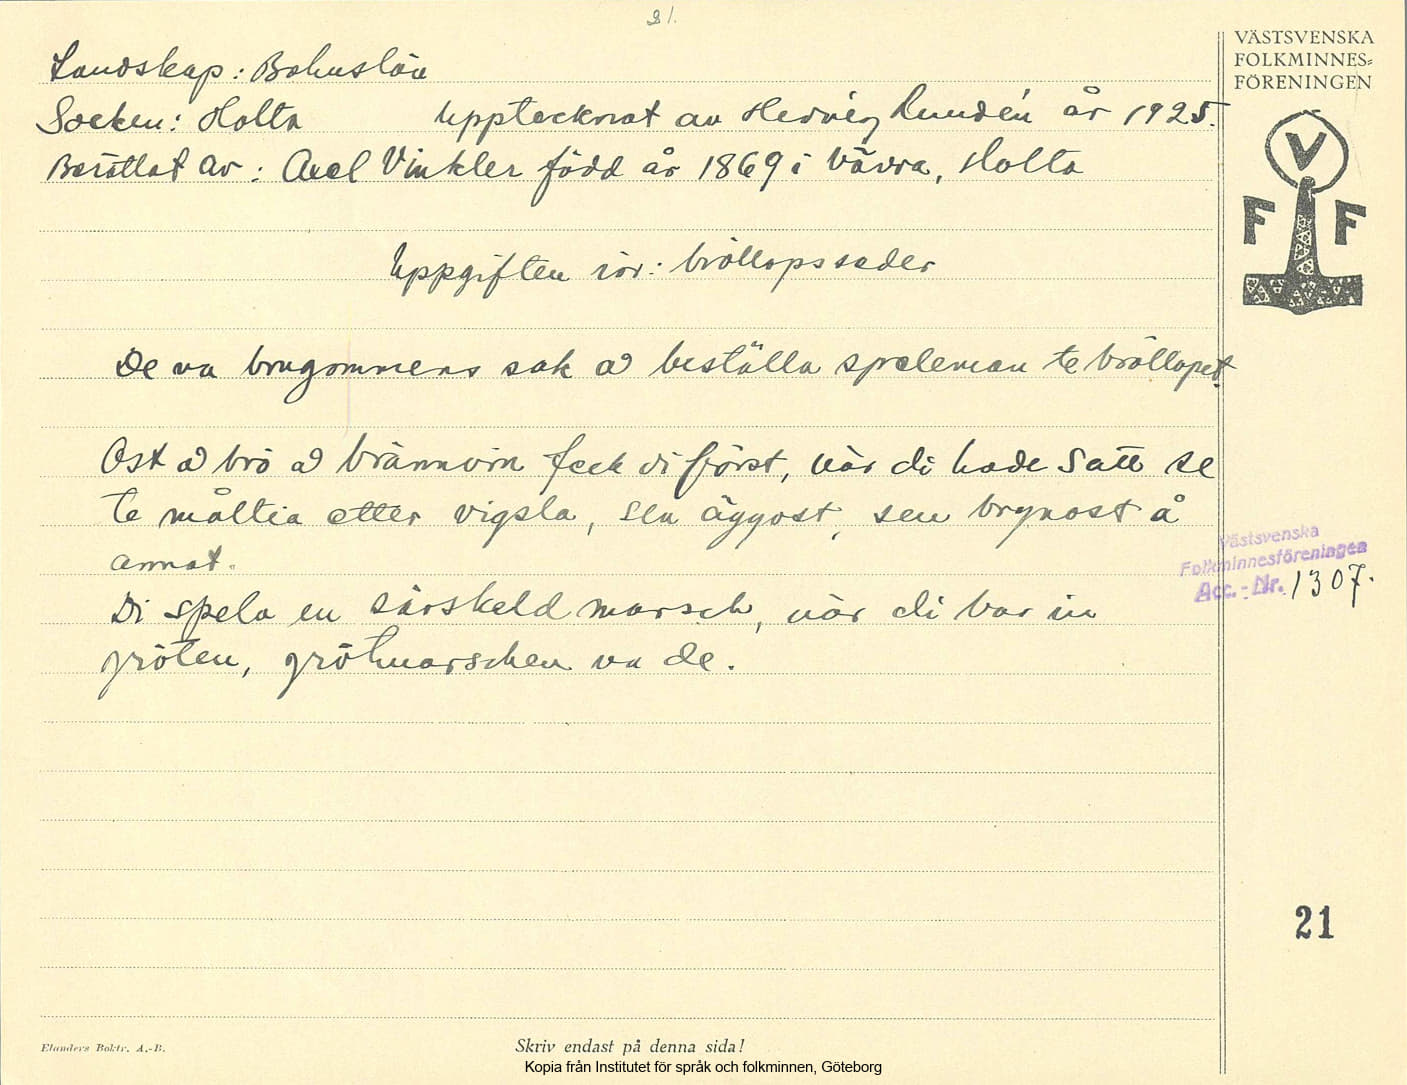 21.
VÄSTSVENSKA
FOLKMINNES=
FÖRENINGEN
V
F F
Landskap: Bohuslän
Socken: Holta Upptecknat av Hedvig Lundén år 1925.
Berättat av: Axel Vinkler född år 1869 i Vävra, Holta
Uppgiften rör: bröllopsseder
De va brugommens sak å beställa speleman te bröllopet.
Ost å brö å brännvin feck di först, när di hade satt se
te måltia etter vigsla, sen äggost, sen brynost å
annat.
Di spela en särskeld marsch, när di bar in
gröten, grötmarschen va de.
Västsvenska
Folkminnesföreningen
Acc. - Nr. 1307.
21
Elanders Boktr. A.-B.
Skriv endast på denna sida!
Kopia från Institutet för språk och folkminnen, Göteborg